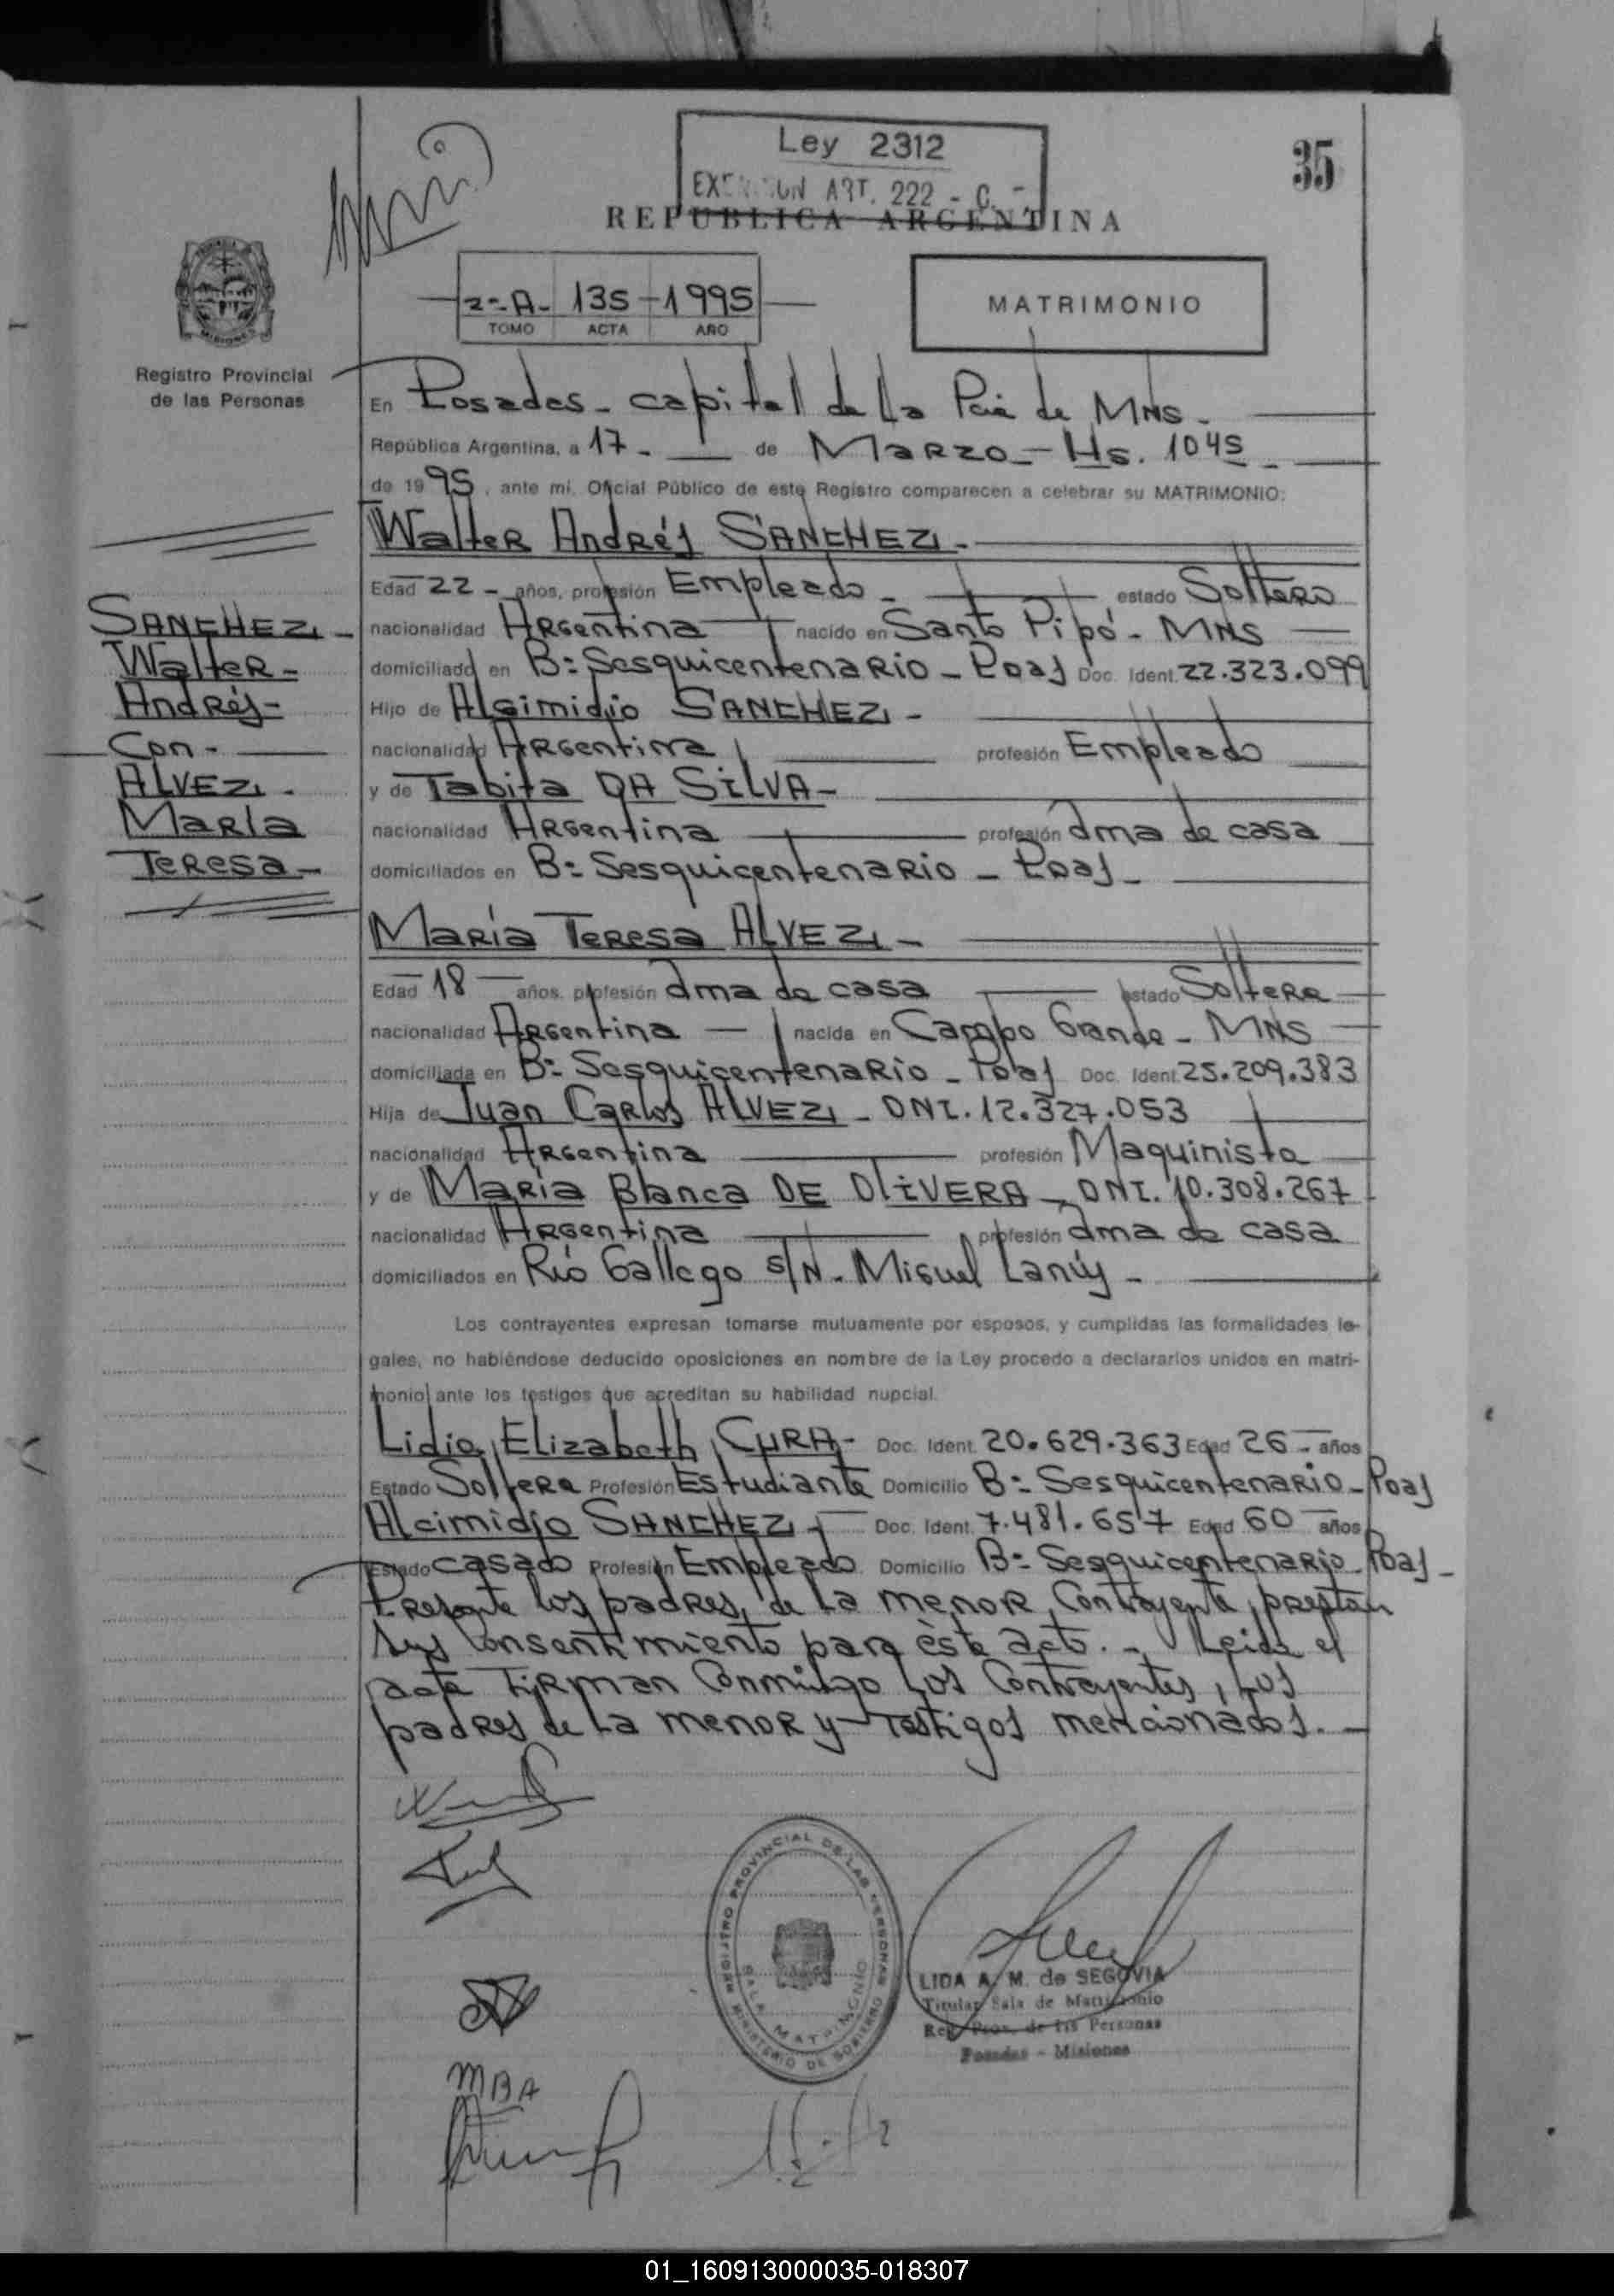 Ley 2312
ART. 222 - C.
35
REPUBLICA ARGENTINA
2º-A- 135 - 1995
TOMO ACTA AÑO
MATRIMONIO
Registro Provincial
de las Personas
En Posadas - capital de la Pcia de MNS -
República Argentina, a 17 - de Marzo - Hs. 1045 -
de 1995, ante mi, Oficial Público de este Registro comparecen a celebrar su MATRIMONIO:
Walter Andrés SANCHEZ -
Edad 22 - años, profesión Empleado - estado Soltero
nacionalidad Argentina nacido en Santo Pipó - MNS
domiciliado en B= Sesquicentenario - Pdas Doc. Ident. 22.323.099
Hijo de Alcimidio SANCHEZ -
nacionalidad Argentina profesión Empleado
y de Tabita DA SILVA -
nacionalidad Argentina profesión ama de casa
domiciliados en B= Sesquicentenario - Pdas -
SANCHEZ -
Walter -
Andrés -
Con -
ALVEZ -
María
Teresa -
María Teresa ALVEZ -
Edad 18 años, profesión ama de casa estado Soltera
nacionalidad Argentina nacida en Campo Grande - MNS
domiciliada en B= Sesquicentenario - Pdas Doc. Ident. 25.209.383
Hija de Juan Carlos ALVEZ - DNI. 12.327.053
nacionalidad Argentina profesión Maquinista
y de María Blanca DE OLIVERA - DNI. 10.308.267
nacionalidad Argentina profesión ama de casa
domiciliados en Río Gallego s/N - Miguel Lanús -
Los contrayentes expresan tomarse mutuamente por esposos, y cumplidas las formalidades le-
gales, no habiéndose deducido oposiciones en nombre de la Ley procedo a declararlos unidos en matri-
monio ante los testigos que acreditan su habilidad nupcial.
Lidia Elizabeth CURA - Doc. Ident. 20.629.363 Edad 26 - años
Estado Soltera Profesión Estudiante Domicilio B= Sesquicentenario - Pdas
Alcimidio SANCHEZ - Doc. Ident. 7.481.657 Edad 60 años
Estado casado Profesión Empleado Domicilio B= Sesquicentenario - Pdas -
Presente los padres de la menor Contrayente, prestan
sus Consentimiento para éste acto. - Leida el
acta Firman Conmingo los Contrayentes, los
padres de la menor y Testigos mencionados. -
REGISTRO PROVINCIAL DE LAS PERSONAS
SALA MATRIMONIO
MINISTERIO DE GOBIERNO
LIDA A. M. de SEGOVIA
Titular Sala de Matrimonio
Reg. Prov. de las Personas
Posadas - Misiones
MBA
01_160913000035-018307